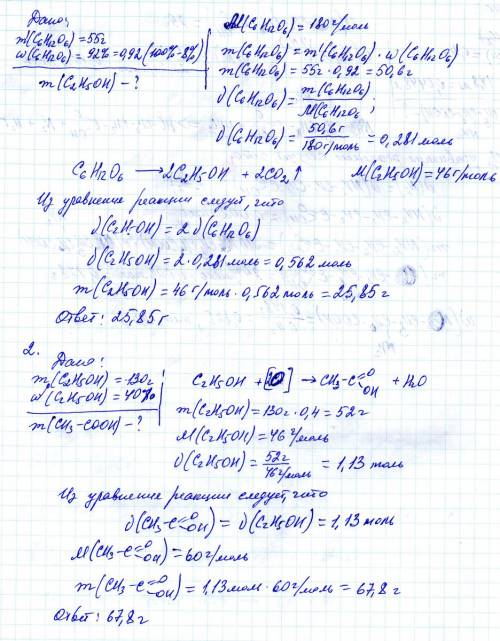 Дано:
m(C6H12O6) = 55г
w(C6H12O6) = 92% = 0,92 (100% - 8%)
m(C2H5OH) - ?
M(C6H12O6) = 180 г/моль
m(C6H12O6) = m'(C6H12O6) · w(C6H12O6)
m(C6H12O6) = 55г · 0,92 = 50,6г
ν(C6H12O6) = m(C6H12O6) / M(C6H12O6 ;
ν(C6H12O6) = 50,6г / 180г/моль = 0,281 моль
C6H12O6 → 2C2H5OH + 2CO2↑ M(C2H5OH) = 46 г/моль
Из уравнение реакции следует, что
ν(C2H5OH) = 2ν(C6H12O6)
ν(C2H5OH) = 2 · 0,281 моль = 0,562 моль
m(C2H5OH) = 46 г/моль · 0,562 моль = 25,85 г
Ответ: 25,85 г
2.
Дано:
m(C2H5OH) = 130г
w(C2H5OH) = 40%
m(CH3-COOH) - ?
C2H5OH + [O] → CH3-C=O OH + H2O
m(C2H5OH) = 130г · 0,4 = 52г
M(C2H5OH) = 46 г/моль
ν(C2H5OH) = 52г / 46 г/моль = 1,13 моль
Из уравнение реакции следует, что
ν(CH3-C=O OH) = ν(C2H5OH) = 1,13 моль
M(CH3-C=O OH) = 60 г/моль
m(CH3-C=O OH) = 1,13 моль · 60 г/моль = 67,8 г
Ответ: 67,8 г